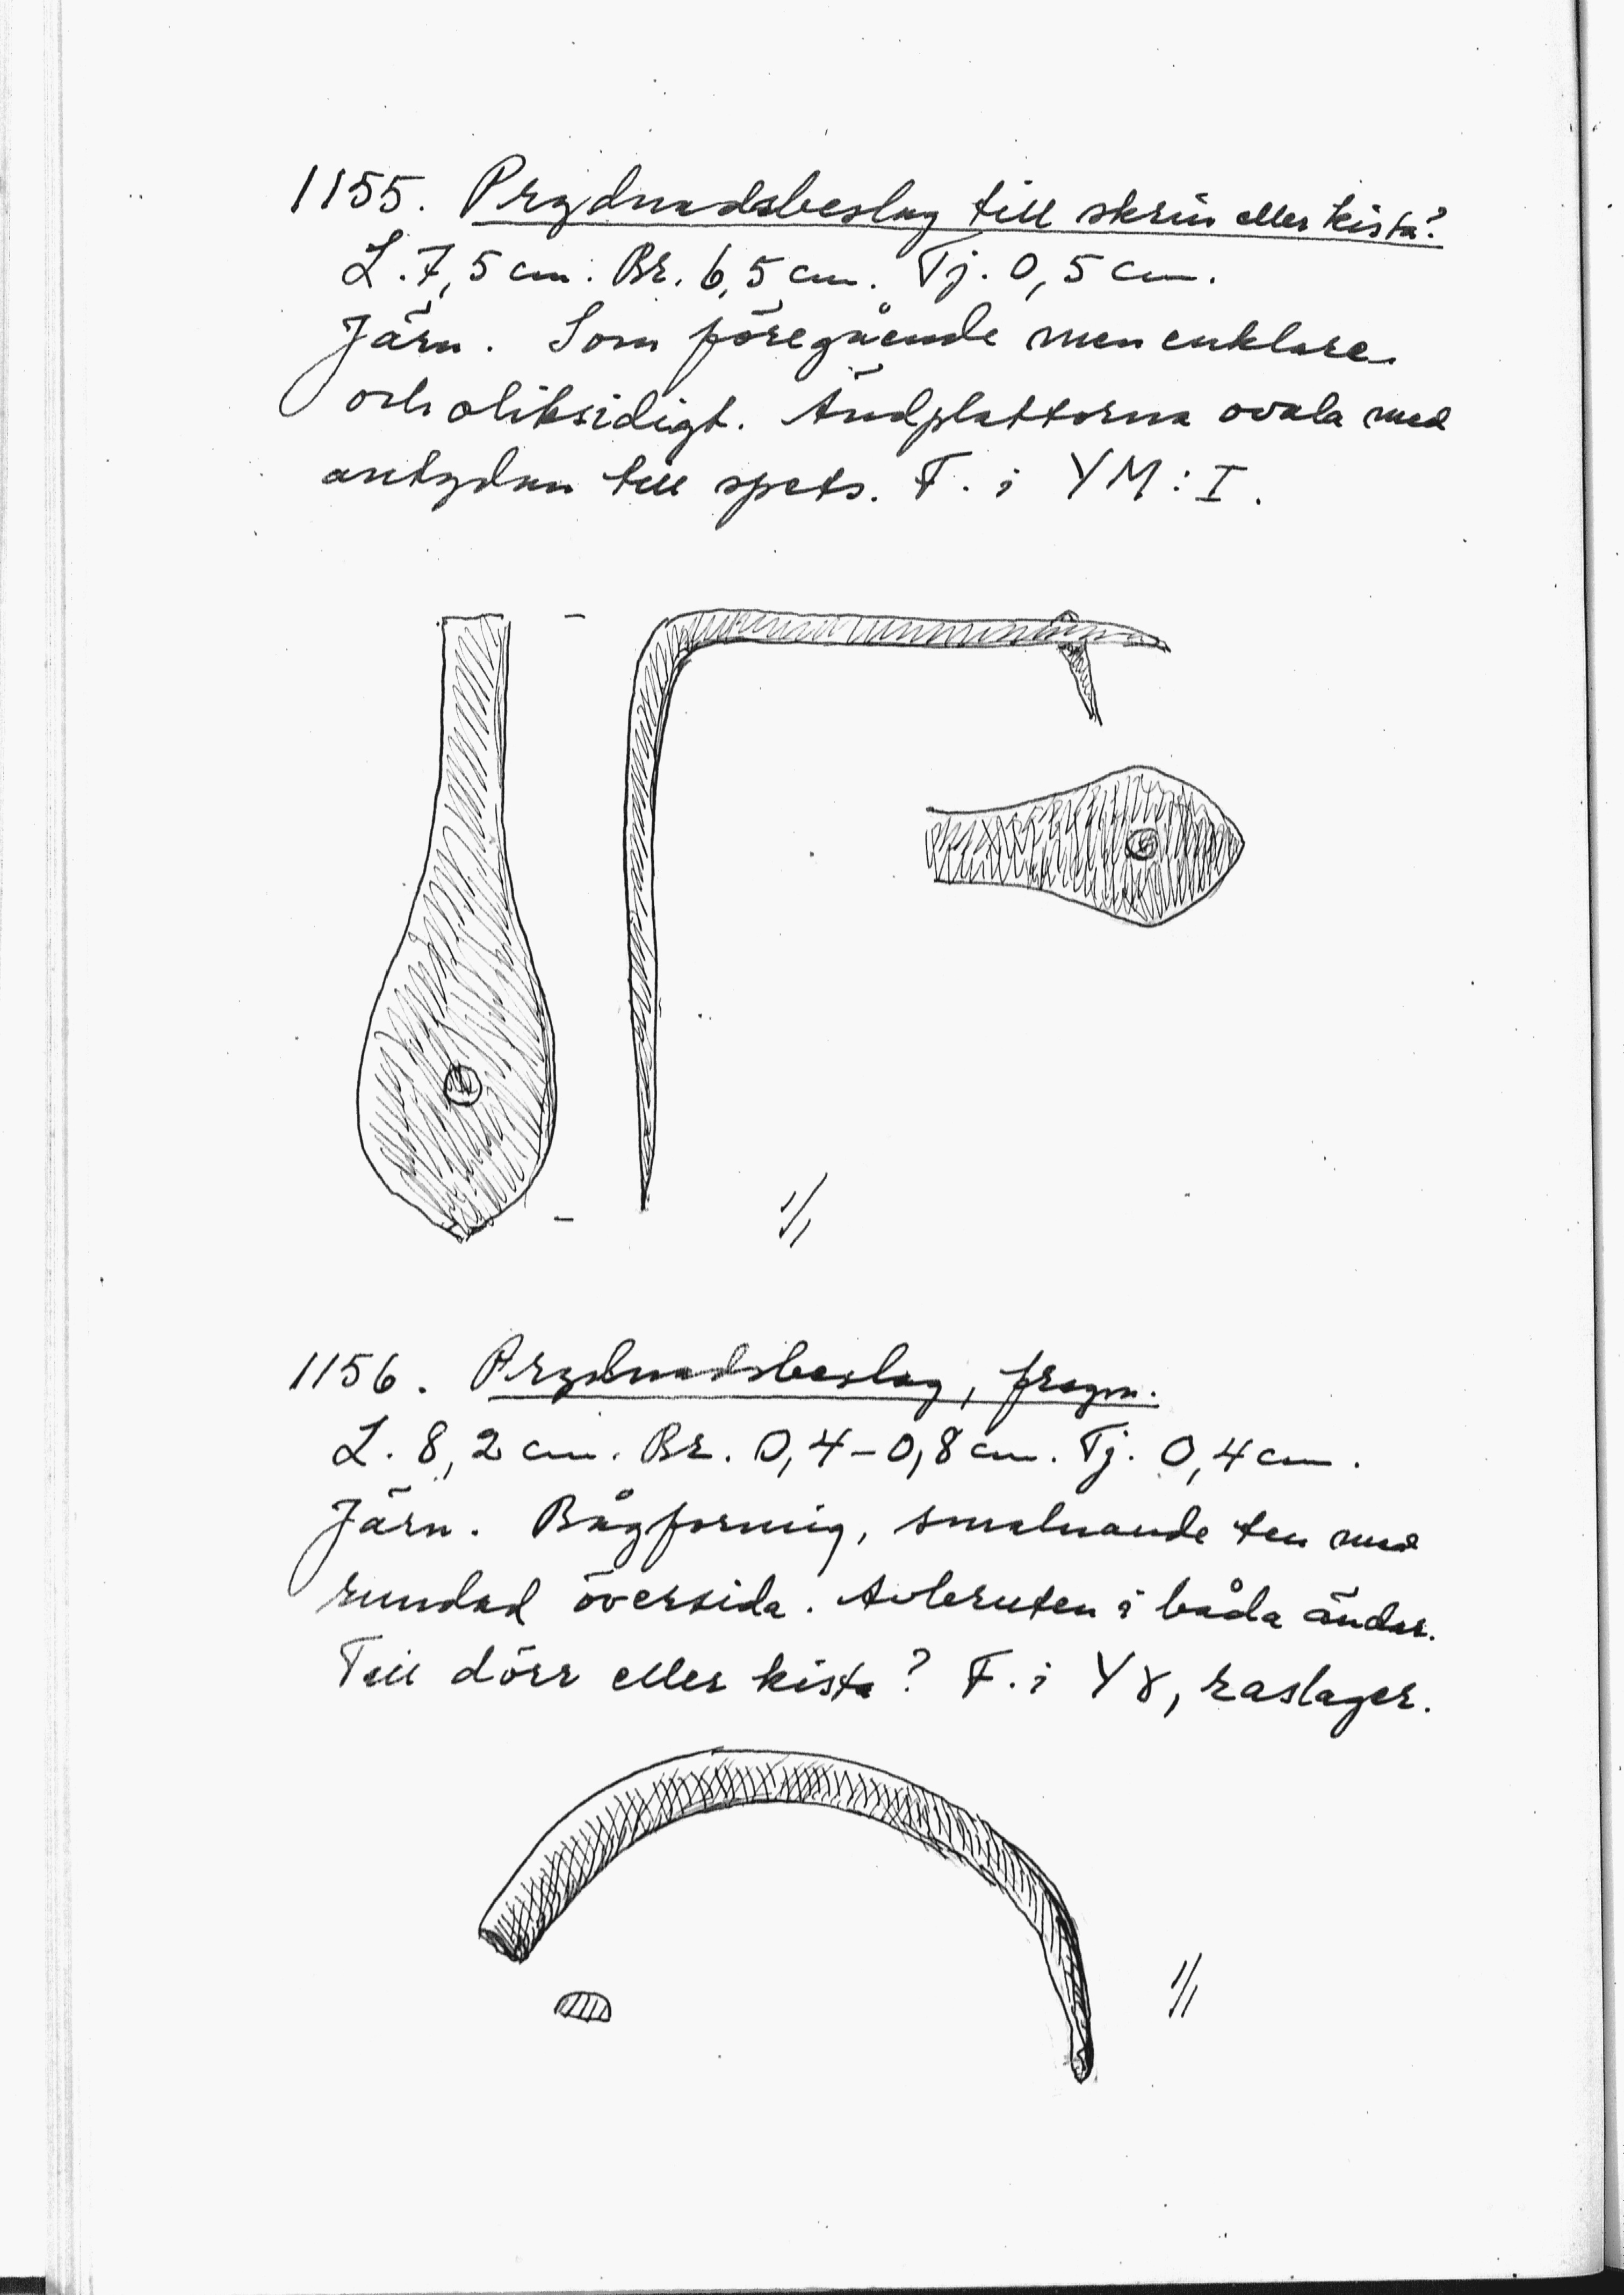 1155. Prydnadsbeslag till skrin eller kista?
L. 7,5 cm. Br. 6,5 cm. Tj. 0,5 cm.
Järn. Som föregående men enklare
och oliksidigt. Ändplattorna ovala med
antydan till spets. F. i YM:I.
1/1
1156. Prydnadsbeslag, fragm.
L. 8,2 cm. Br. 0,4-0,8 cm. Tj. 0,4 cm.
Järn. Bågformig, smalnande ten med
rundad översida. Avbruten i båda ändar.
Till dörr eller kista? F. i Yγ, raslager.
1/1